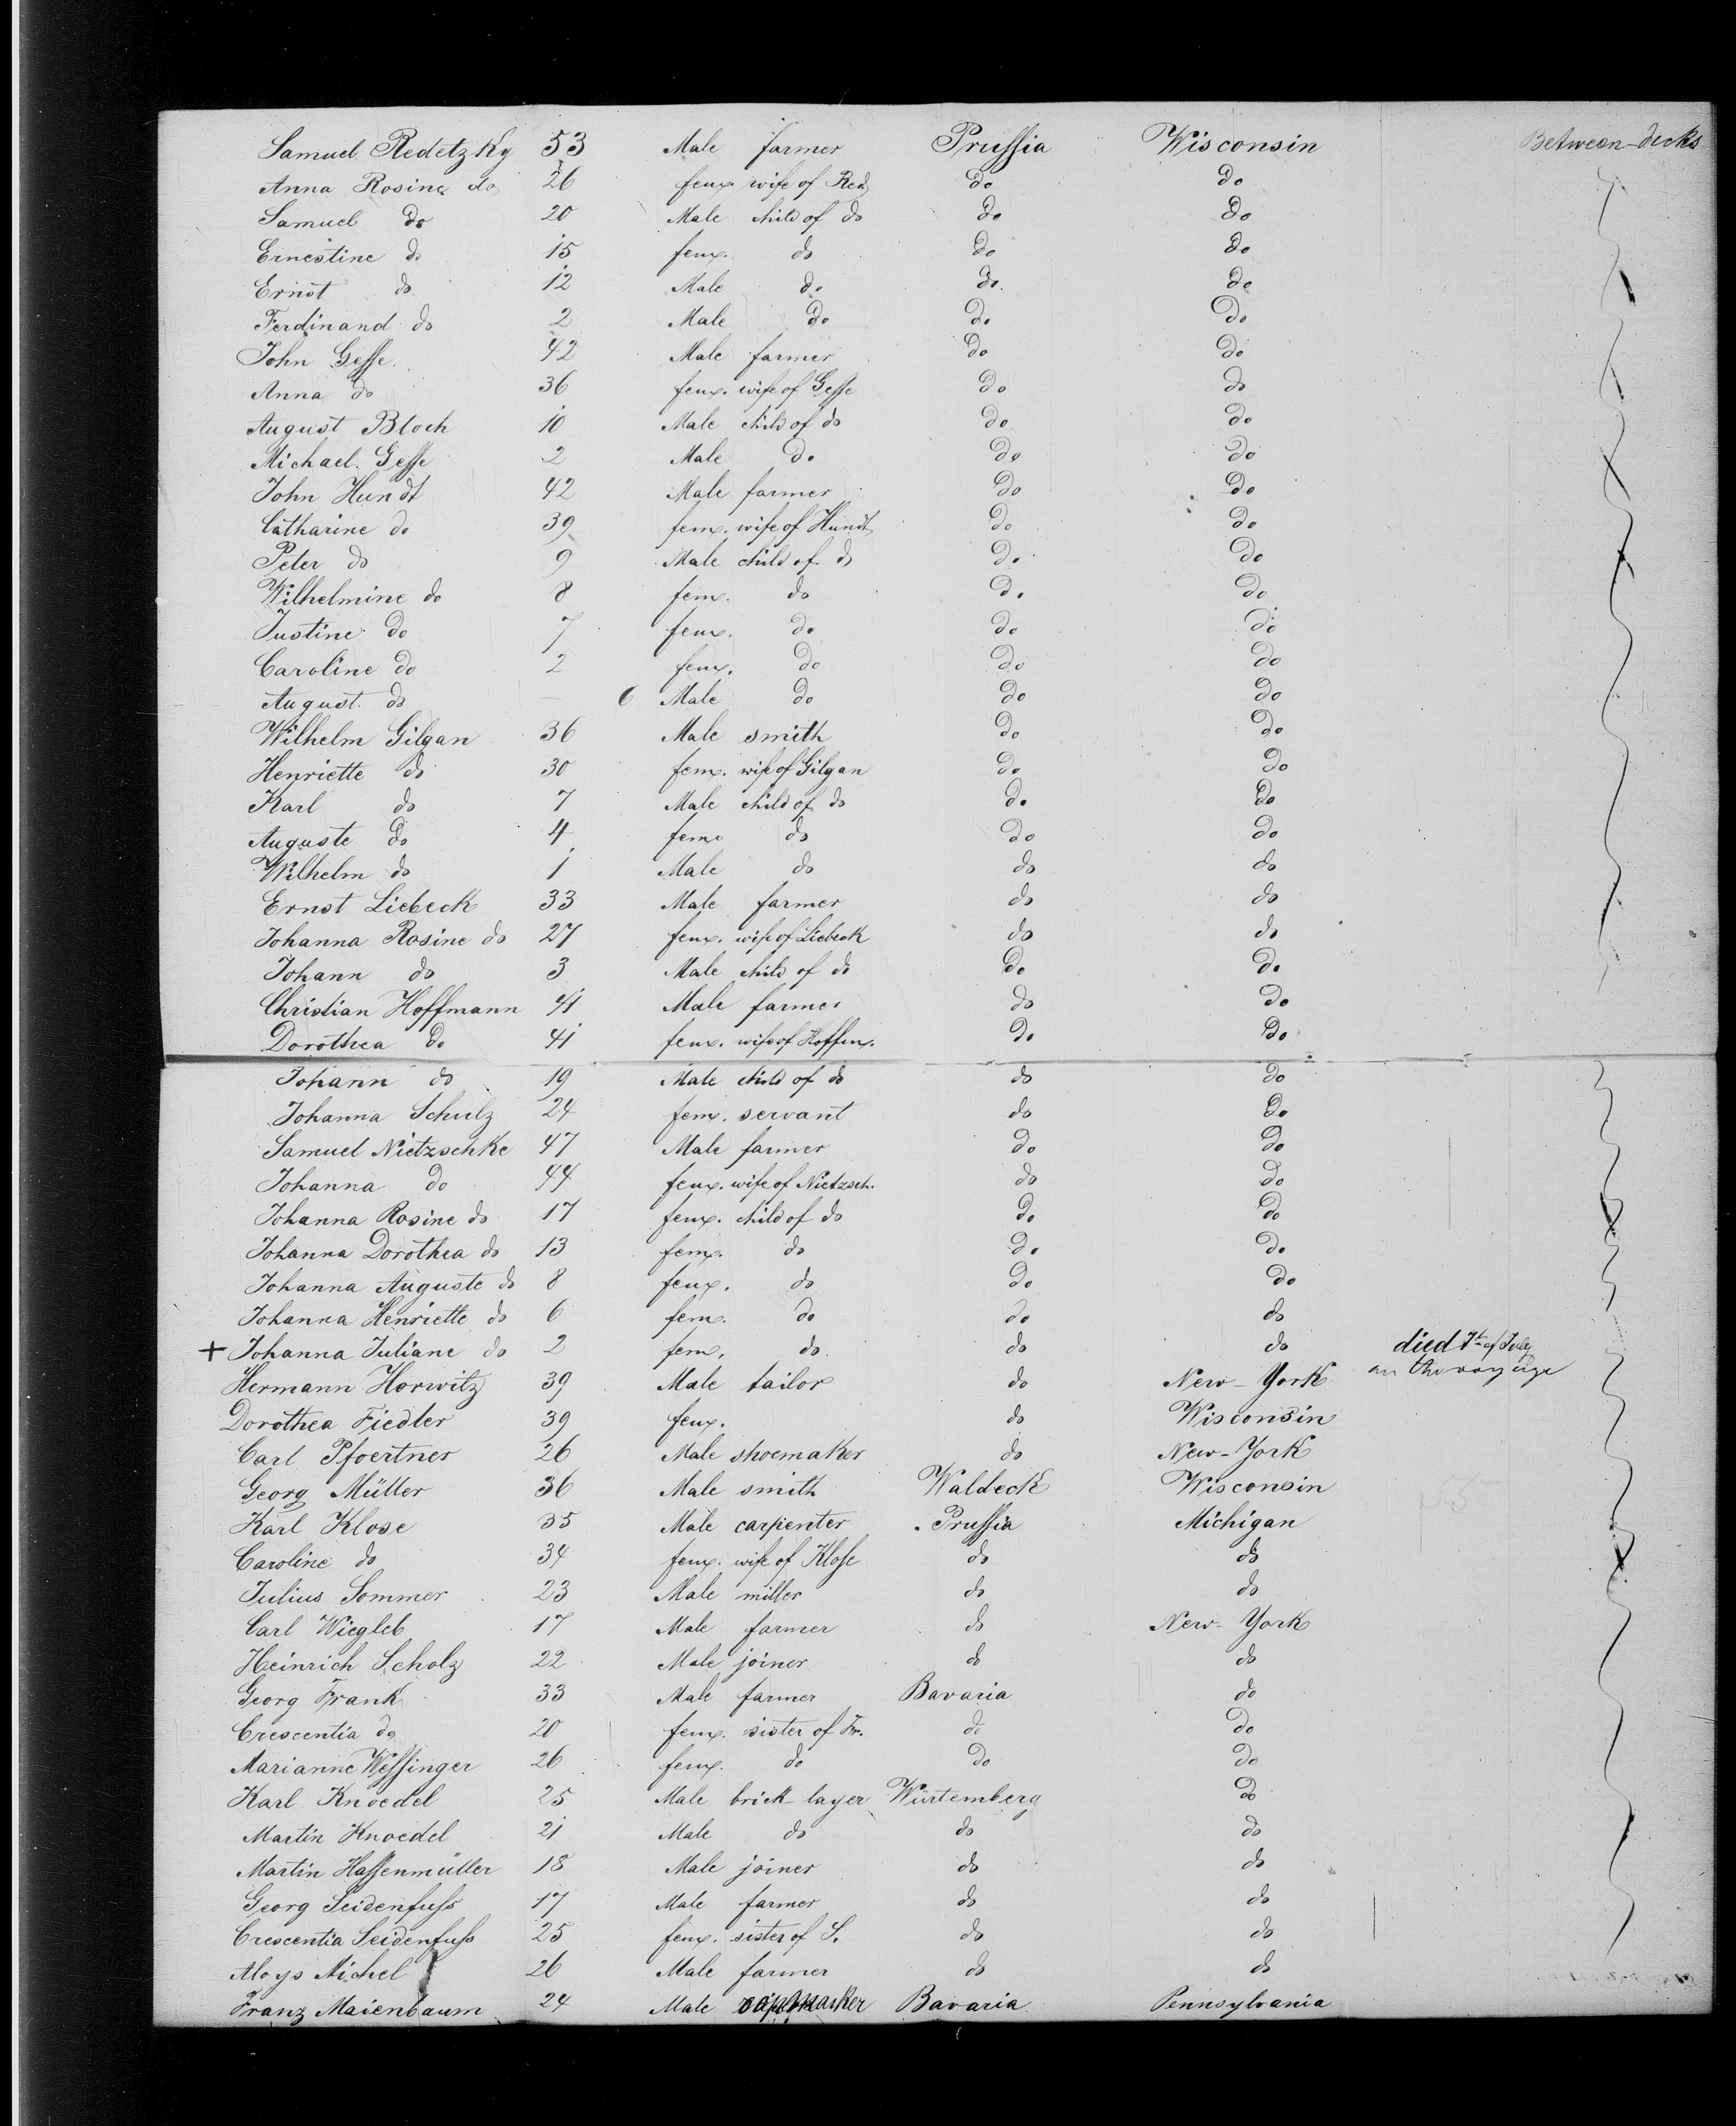 Samuel Redetzky 53 Male farmer Prussia Wisconsin Between-decks
Anna Rosine do 26 fem. wife of Red do do
Samuel do 20 Male child of do do do
Ernestine do 15 fem. do do do
Ernst do 12 Male do do do
Ferdinand do 2 Male do do do
John Gesse 42 Male farmer do do
Anna do 36 fem. wife of Gesse do do
August Bloch 10 Male child of do do do
Michael Gesse 2 Male do do do
John Hundt 42 Male farmer do do
Catharine do 39 fem. wife of Hundt do do
Peter do 9 Male child of do do do
Wilhelmine do 8 fem. do do do
Justine do 7 fem. do do do
Caroline do 2 fem. do do do
August do — 6 Male do do do
Wilhelm Gilgan 36 Male smith do do
Henriette do 30 fem. wife of Gilgan do do
Karl do 7 Male child of do do do
Auguste do 4 fem. do do do
Wilhelm do 1 Male do do do
Ernst Liebeck 33 Male farmer do do
Johanna Rosine do 27 fem. wife of Liebeck do do
Johann do 3 Male child of do do do
Christian Hoffmann 41 Male farmer do do
Dorothea do 41 fem. wife of Hoffm. do do
Johann do 19 Male child of do do do
Johanna Schulz 24 fem. servant do do
Samuel Nietzschke 47 Male farmer do do
Johanna do 44 fem. wife of Nietzsch. do do
Johanna Rosine do 17 fem. child of do do do
Johanna Dorothea do 13 fem. do do do
Johanna Auguste do 8 fem. do do do
Johanna Henriette do 6 fem. do do do
+ Johanna Juliane do 2 fem. do do do died 7th of July
on the voyage
Hermann Horwitz 39 Male tailor do New-York
Dorothea Fiedler 39 fem. do Wisconsin
Carl Pfoertner 26 Male shoemaker do New-York
Georg Müller 36 Male smith Waldeck Wisconsin
Karl Klose 35 Male carpenter Prussia Michigan
Caroline do 34 fem. wife of Klose do do
Julius Sommer 23 Male miller do do
Carl Wiegleb 17 Male farmer do New-York
Heinrich Scholz 22 Male joiner do do
Georg Frank 33 Male farmer Bavaria do
Crescentia do 20 fem. sister of Fr. do do
Marianne Wessinger 26 fem. do do do
Karl Knoedel 25 Male brick-layer Würtemberg do
Martin Knoedel 21 Male do do do
Martin Hassenmüller 18 Male joiner do do
Georg Seidenfuss 17 Male farmer do do
Crescentia Seidenfuss 25 fem. sister of S. do do
Aloys Michel 26 Male farmer do do
Franz Maienbaum 24 Male Bavaria Pennsylvania